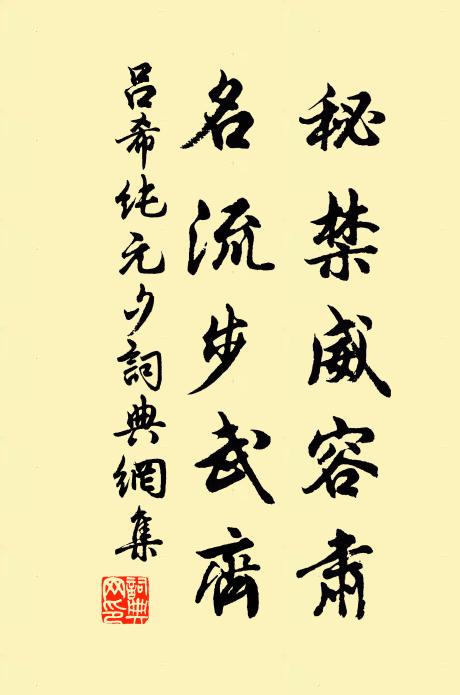 秘禁威容肅
名流步武齊
呂希純元夕詞典網集
詞典網印